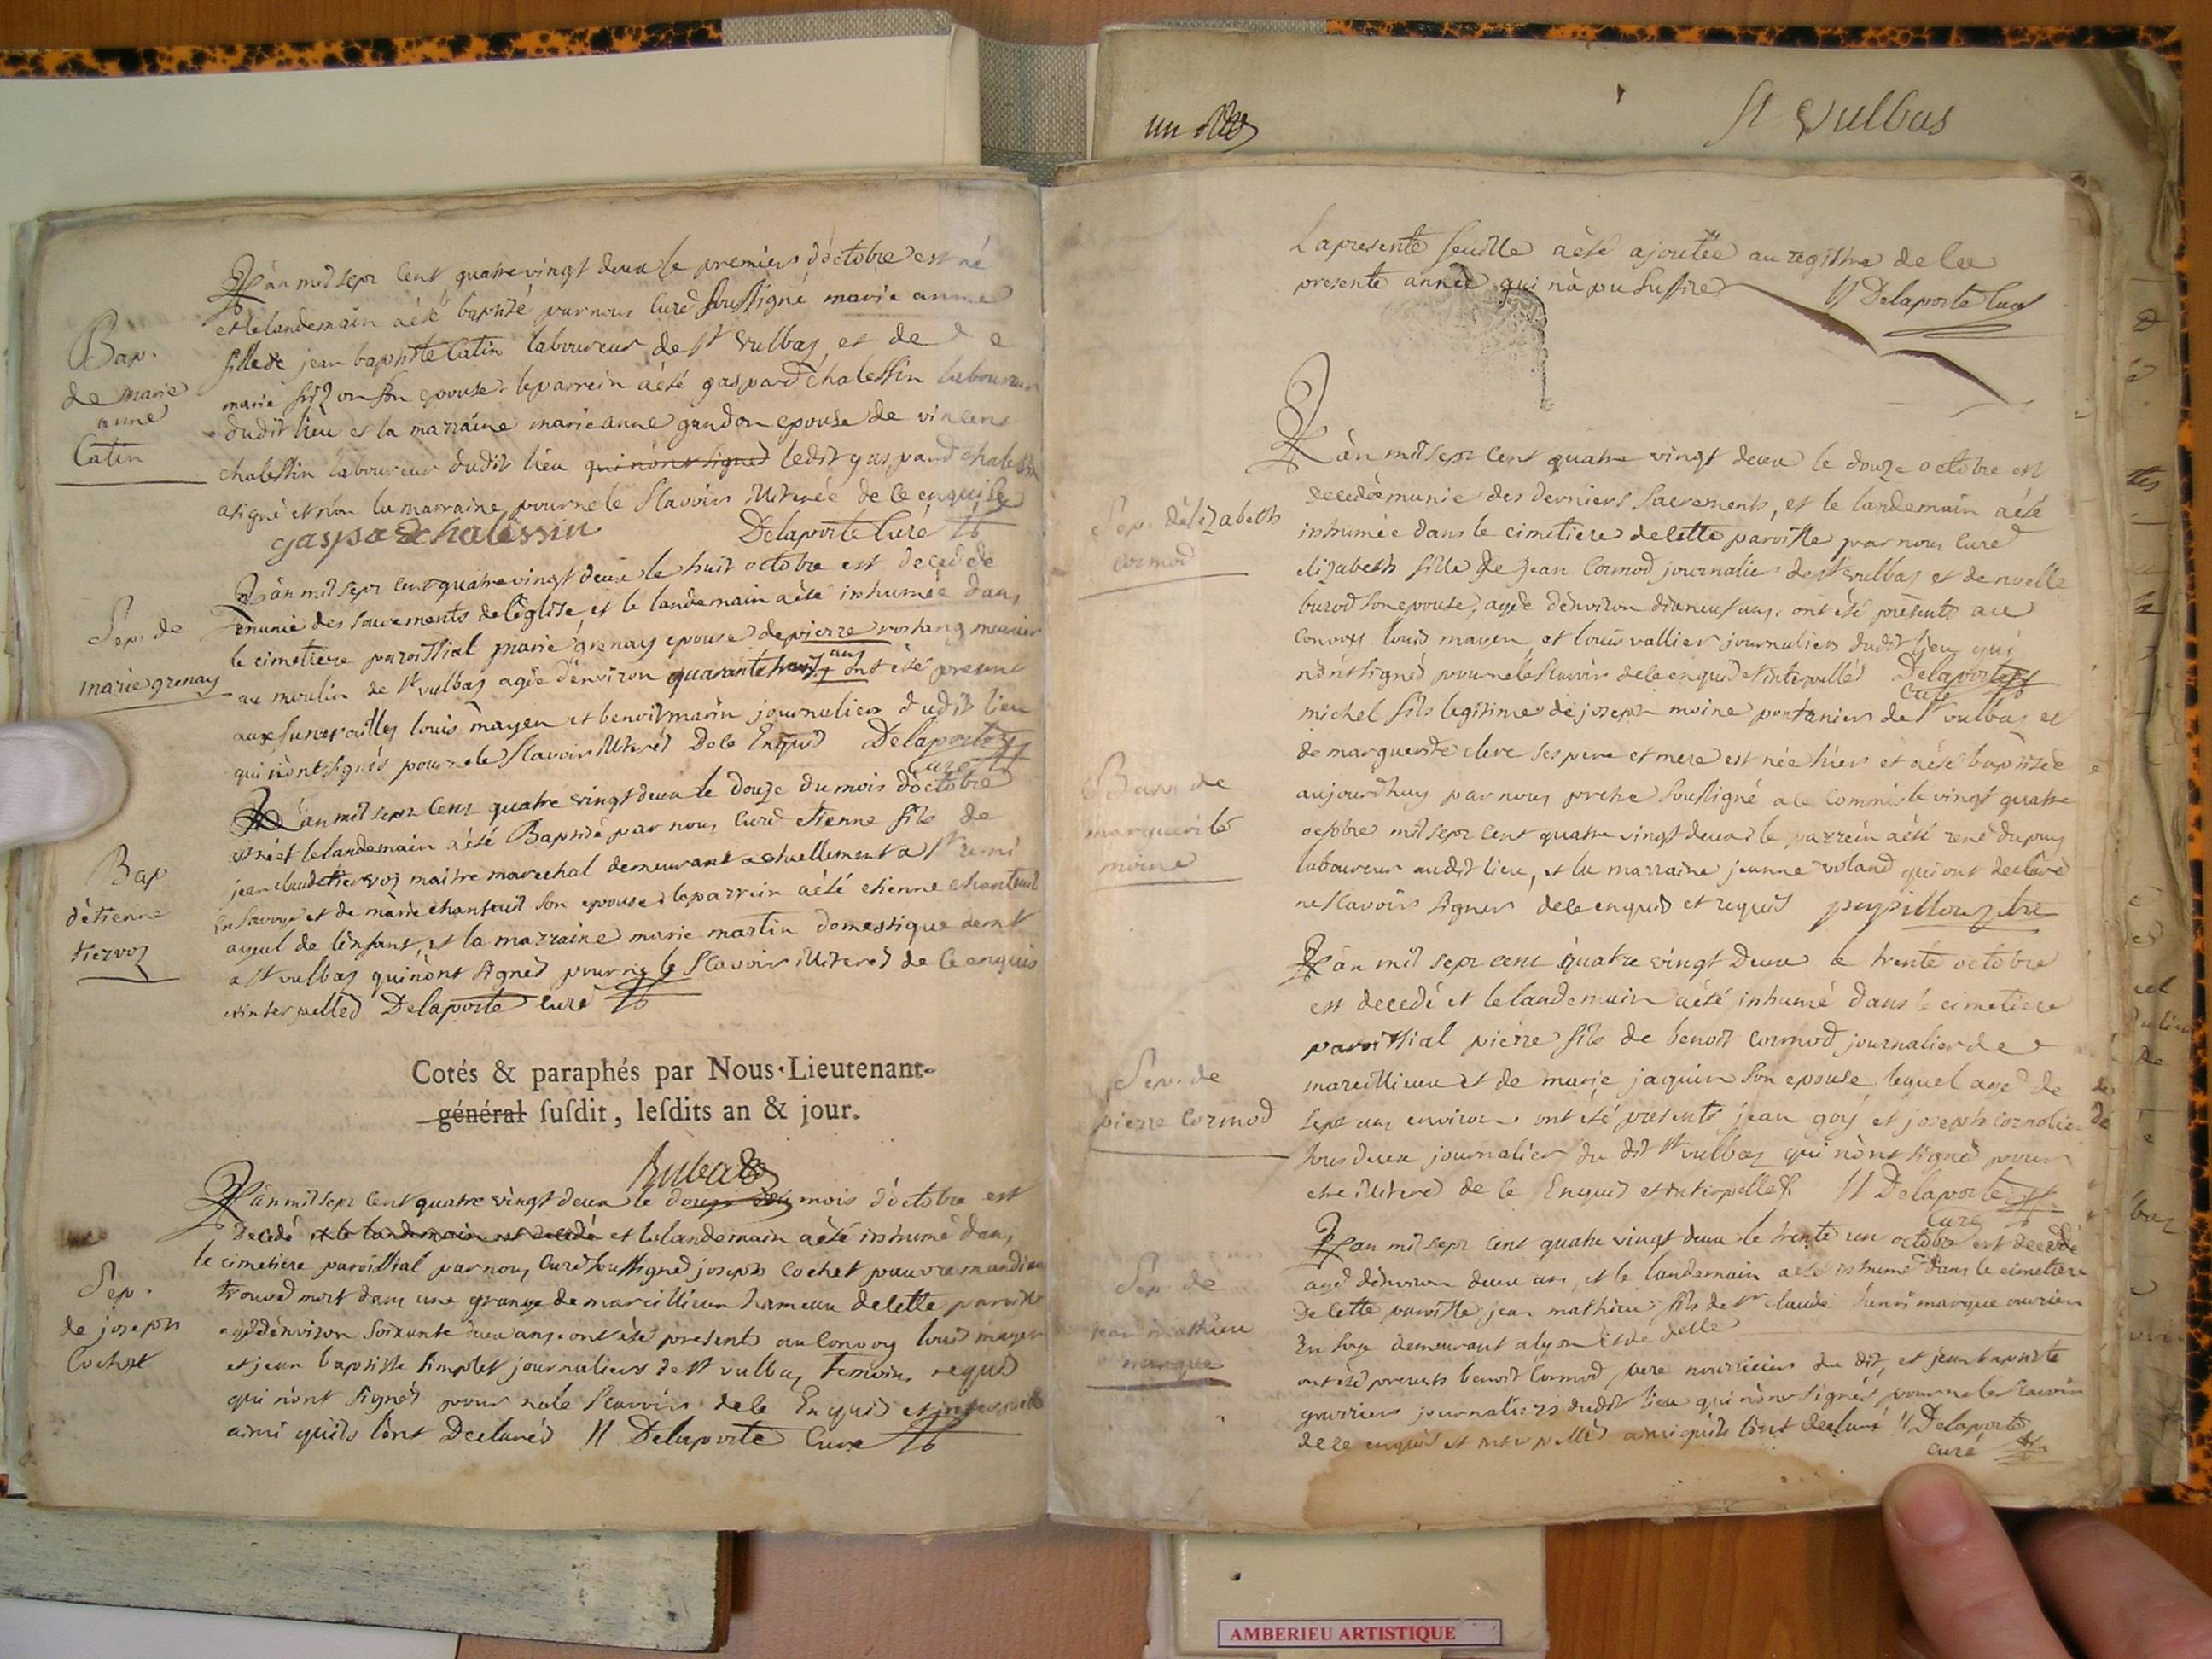 St Vulbas
Bap.
de marie
anne
Catin
L'an mil sept cent quatre vingt deux le premier d'octobre est né
et le landemain a été baptisé par nous curé soussigné marie anne
fille de jean baptiste Catin laboureur de st vulbas et de
marie son epouse. le parrein a été gaspard chalessin laboureur
dudit lieu et la marraine marie anne gandon epouse de vincent
chalessin laboureur dudit lieu qui n'ont signed ledit gaspard chalessin
a signé et non la marraine pour ne le scavoir illiterée de ce enquise
gaspardchalessin Delaporte Curé
Sep. de
marie grenay
L'an mil sept cent quatre vingt deux le huit octobre est decedée
munie des sacrements de l'église, et le landemain a été inhumée dans
le cimetiere paroissial marie grenay epouse de pierre rostang meunier
au moulin de st vulbas agée d'environ quarante ans ont été present
aux funerailles louis mayen et benoit marin journalier dudit lieu
qui n'ont signés pour ne le scavoir illiteréd De ce Enquid Delaporte
Curé
Bap
d'etienne
tiervoz
L'an mil sept cent quatre vingt deux le douze du mois d'octobre
est né et le landemain a été Baptisé par nous curé etienne fils de
jean claude tiervoz maitre marechal demeurant actuellement a st remi
en Savoye et de marie chanteuil son epouse. le parrein a été etienne chanteuil
ayeul de l'enfant, et la marraine marie martin domestique demt
a st vulbas qui n'ont signed pour ne le scavoir illitered de ce enquis
et interpelled Delaporte curé
Cotés & paraphés par Nous Lieutenant-
général susdit, lesdits an & jour.
Sep.
de joseph
Cochet
L'an mil sept cent quatre vingt deux le douze du mois d'octobre est
decedé et le landemain est decedé et le landemain a été inhumé dans
le cimetiere paroissial par nous curé soussigned joseph Cochet pauvre mandian
trouved mort dans une grange de marcillieux hameau de cette paroisse
agé d'environ soixante deux ans. ont été present au convoy louis mayen
et jean baptiste simplet journaliers de st vulbas temoins requis
qui n'ont signés pour ne le scavoir de ce Enquis et interpellé
ainsi quils l'ont Declaréd Delaporte Curé
La presente feuille a été ajoutée au registre de la
presente année qui n'a pu suffire Delaporte Curé
Sep. d'elizabeth
Cormod
L'an mil sept cent quatre vingt deux le douze octobre est
decedée munie des derniers sacrements, et le landemain a été
inhumée dans le cimetiere de cette paroisse par nous curé
elizabeth fille de jean Cormod journalier de st vulbas et de noelle
burod son epouse, agée d'environ dixneuf ans. ont été présents au
convoy louis mayen et louis vallier journaliers dudit lieu qui
n'ont signed pour ne le scavoir de ce enquid et interpelléd Delaporte
Curé
Bap. de
marguerite
moine
michel fils legitime de joseph moine pontanier de st vulbas et
de marguerite clerc ses pere et mere est née hier et a été baptisée
aujourdhuy par nous pretre soussigné a ce commis le vingt quatre
octobre mil sept cent quatre vingt deux. le parrein a été rené dupuy
laboureur audit lieu, et la marraine jeanne voland qui ont declaré
ne scavoir signer de ce enquis et requis
Sep. de
pierre Cormod
L'an mil sept cent quatre vingt deux le trente octobre
est decedé et le landemain a été inhumé dans le cimetiere
paroissial pierre fils de benoit Cormod journalier de
marcillieux et de marie jaquin son epouse lequel agé de
sept ans environ. ont été presents jean goy et joseph cornolier
tous deux journalier du dit st vulbas qui n'ont signed pour
etre illitered de ce Enquis et interpelled Delaporte
Curé
Sep. de
jean mathieu
marque
L'an mil sept cent quatre vingt deux le trente un octobre est decedé
agé d'environ deux ans, et le landemain a été inhumé dans le cimetiere
de cette paroisse jean mathieu fils de sr claude henri marque ouvrier
En soye demeurant a lyon et de delle
ont été presents benoit Cormod pere nourricier du dit, et jean baptiste
guerrier journaliers dudit lieu qui n'ont signés pour ne le scavoir
de ce enquis et interpelléd ainsi quils l'ont declaré Delaporte
curé
AMBERIEU ARTISTIQUE